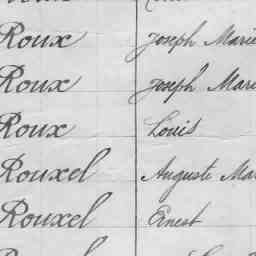 Roux Joseph Marie
Roux Joseph Mari
Roux Louis
Rouxel Auguste Ma
Rouxel Ernest